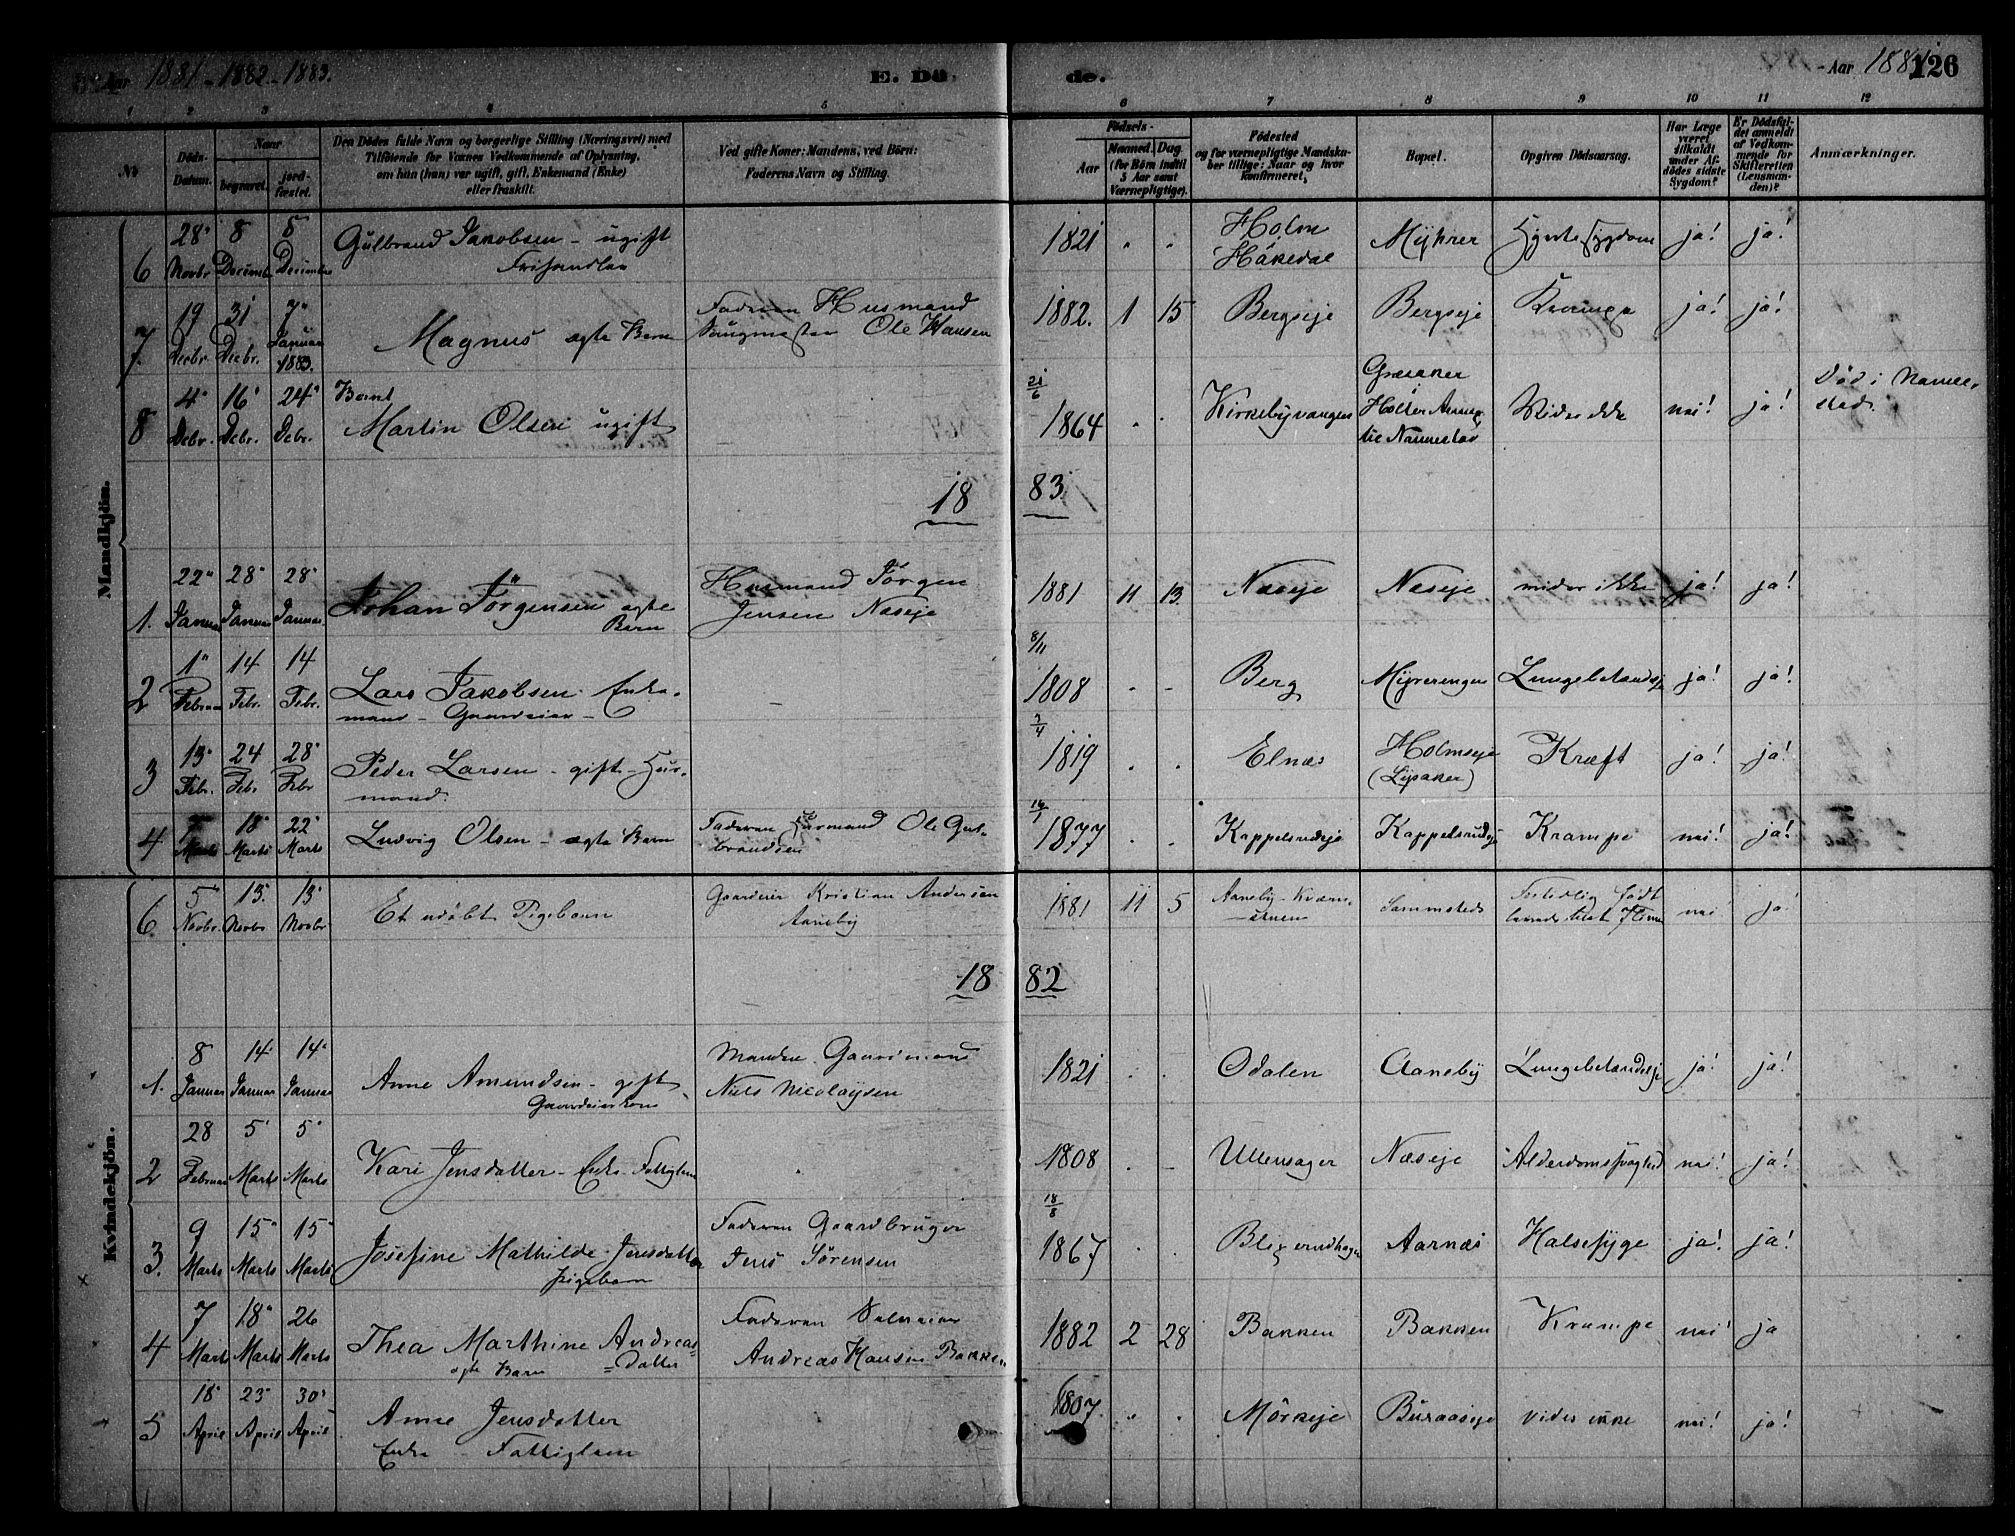 Aar 1881-1882-1883.
E. Dö
de.
- Aar 188
126
1 2 3 4 5 6 7 8 9 10 11 12
No
Döds-Datum.
Naar
begravet.
jord-fæstet.
Den Dödes fulde Navn og borgerlige Stilling (Næringsvei) med
Tilföiende for Voxnes Vedkommende af Oplysning,
om hun (han) var ugift, gift, Enkemand (Enke)
eller fraskilt.
Ved gifte Koner: Mandens, ved Börn:
Faderens Navn og Stilling.
Födsels-
Aar
Maaned. Dag.
(for Börn indtil
5 Aar samt
Værnepligtige).
Födested
og for værnepligtige Mandska-
ber tillige: Naar og hvor
konfirmeret.
Bopæl.
Opgiven Dödsaarsag.
Har Læge
været
tilkaldt
under Af-
dödes sidste
Sygdom?
Er Dödsfal-
det anmeldt
af Vedkom-
mende for
Skifteretten
(Lensman-
den)?
Anmærkninger.
Mandkjön.
6 28 Novbr 8 Decemb 5 December Gulbrand Jakobsen - ugift 1821 " " Holm Hakedal Myhrer ja! ja!
7. 19 Decbr. 31 Decbr. 7 Januar 1883. Magnus ægte Barn Faderen Husmand Ole Hansen 1882. 1 15 Bergseje Bergseje ja! ja!
8 4 Debr. 16 Debr. 24 Debr. Bernt Martin Olsen ugift 21/6 1864 " " Kirkebyvangen Græsaker Holter Annex til Nannestad Vides ikke nei! ja! Död i Nannestad.
18 83
1. 22 Januar 28 Januar 28 Januar Johan Jörgensen ægte Barn Husmand Jörgen Jensen Næseje 1881 11 13. Næseje Næseje vides ikke ja! ja!
2 1 Februar 14 Febr. 14 Febr. Lars Jakobsen Enke-
mand - Gaardeier - 8/11 1808 - - Berg Myrerengen Lungebetændelse ja! ja!
3 13 Febr. 24 Febr 28 Febr Peder Larsen - gift - Hus-
mand. 7/4 1819 " " Elnæs Holmseje (Lysaker) Kræft ja! ja!
4 7 Marts 18 Marts 22 Marts Ludvig Olsen - ægte Barn Faderen Husmand Ole Gul-
brandsen 1877 " " Kappelsrudeje Kappelsrudeje Krampe nei! ja!
Kvindekjön.
6. 5 Novbr. 13. Novbr 13 Novbr Et udöbt Pigebarn Gaardeier Kristian Andersen Aaneby 1881 11 5 Aaneby Sammesteds nei! ja!
18 82
1. 8 Januar 14 Januar 14 Januar Anne Amundsen - gift Gaardeierkone Manden Gaardmand Niels Nicolaysen 1821 " " Odalen Aaneby Lungebetændelse ja! ja!
2 28 Februar 5 Marts 5 Marts Kari Jensdatter - Enke - Fattiglem 1808 " - Ullensager Næseje Alderdomssvaghed nei! ja!
3. 9 Marts 15 Marts 15 Marts Josefine Mathilde Jensdatter Pigebarn Faderen Gaardbruger Jens Sörensen 18/8 1867 " " Aarnæs Halsesyge ja! ja!
4 7 Marts 18 Marts 26 Marts Thea Marthine Andreas-
datter ægte Barn Faderen Selveier Andreas Hansen Bakken 1882 2 28 Bakken Bakken Krampe nei! ja
5 18 April 23 April 30 April Anne Jensdatter
Enke - Fattiglem 1807. " " Mörkeje Buraaseje vides ikke nei! ja!